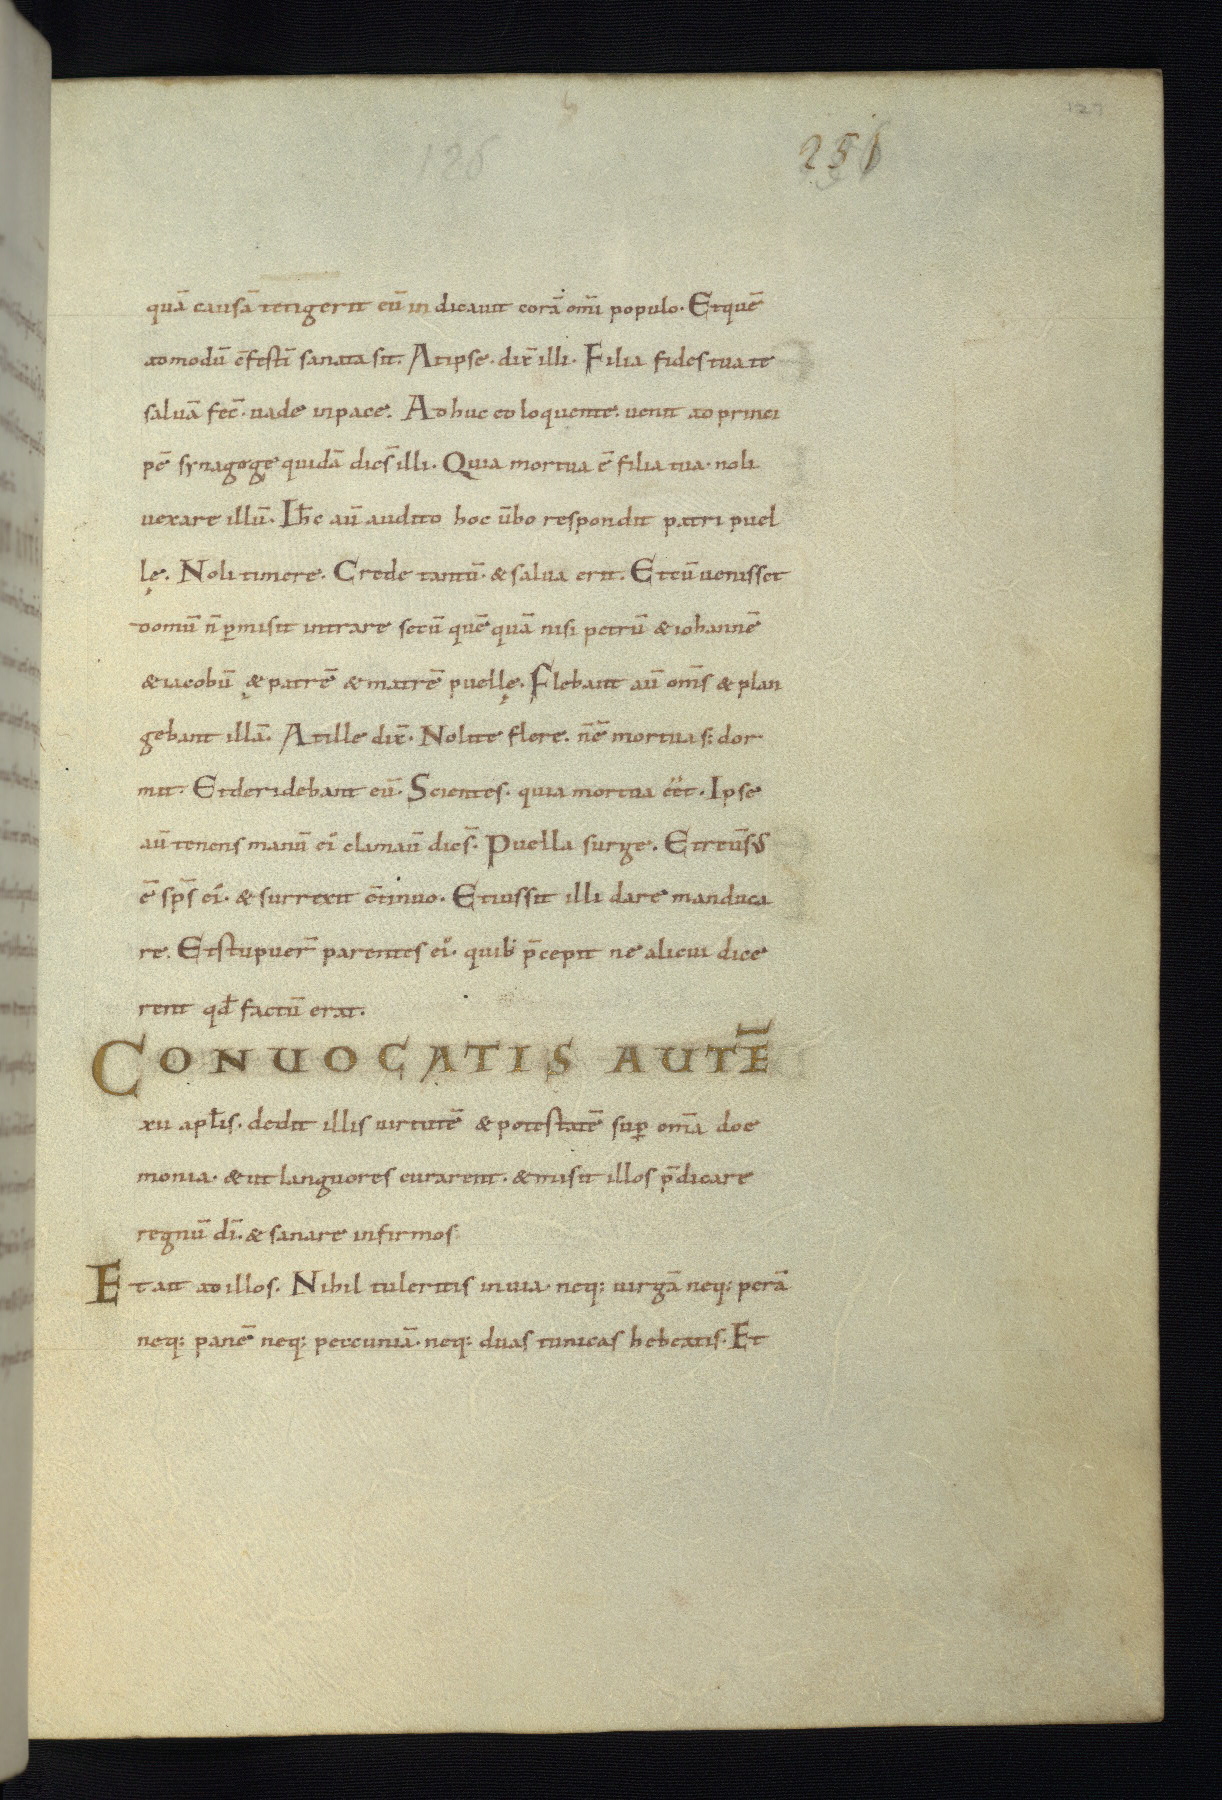 127
126
256
quā causā tetigerit eū in dicauit corā om̄i populo. Et quē
admodū c̄festī sanata sit. At ipse. dix̄ illi. Filia fides tua te
saluā fec̄. uade in pace. Ad huc eo loquente. uenit ad princi
pē synagoge quidā dicēs illi. Quia mortua ē filia tua. noli
uexare illū. Ih̄c aū audito hoc ūbo respondit patri puel
lę. Noli timere. Crede tantū. & salua erit. Et cū uenisset
domū n̄ ꝑmisit intrare secū quē quā nisi petrū & iohannē
& iacobū & patrē & matrē puellę. Flebant aū om̄s & plan
gebant illā. At ille dix̄. Nolite flere. n̄ ē mortua s; dor
mit. Et deridebant eū. Scientes. quia mortua eēt. Ipse
aū tenens manū ei clamauī dicēs. Puella surge. Et reūsꝰ
ē sp̄s ei. & surrexit c̄tinuo. Et iussit illi dare manduca
re. Et stupuer̄ parentes ei. quib; p̄cepit ne alicui dice
rent qd̄ factū erat.
CONUOCATIS AUTĒ
xii apl̄is. dedit illis uirtutē & potestatē suꝑ om̄ia doe
monia. & ut languores curarent. & misit illos p̄dicare
regnū dī. & sanare infirmos.
Et ait ad illos. Nihil tuleritis in uia. neq; uirgā neq; perā
neq; panē neq; peccuniā. neq; duas tunicas hebeatis. Et